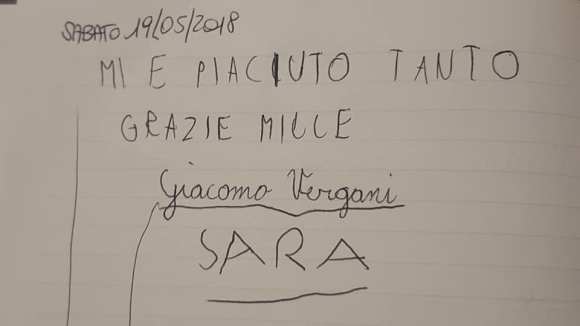 SABATO 19/05/2018
MI E PIACIUTO TANTO
GRAZIE MILLE
Giacomo Vergani
SARA